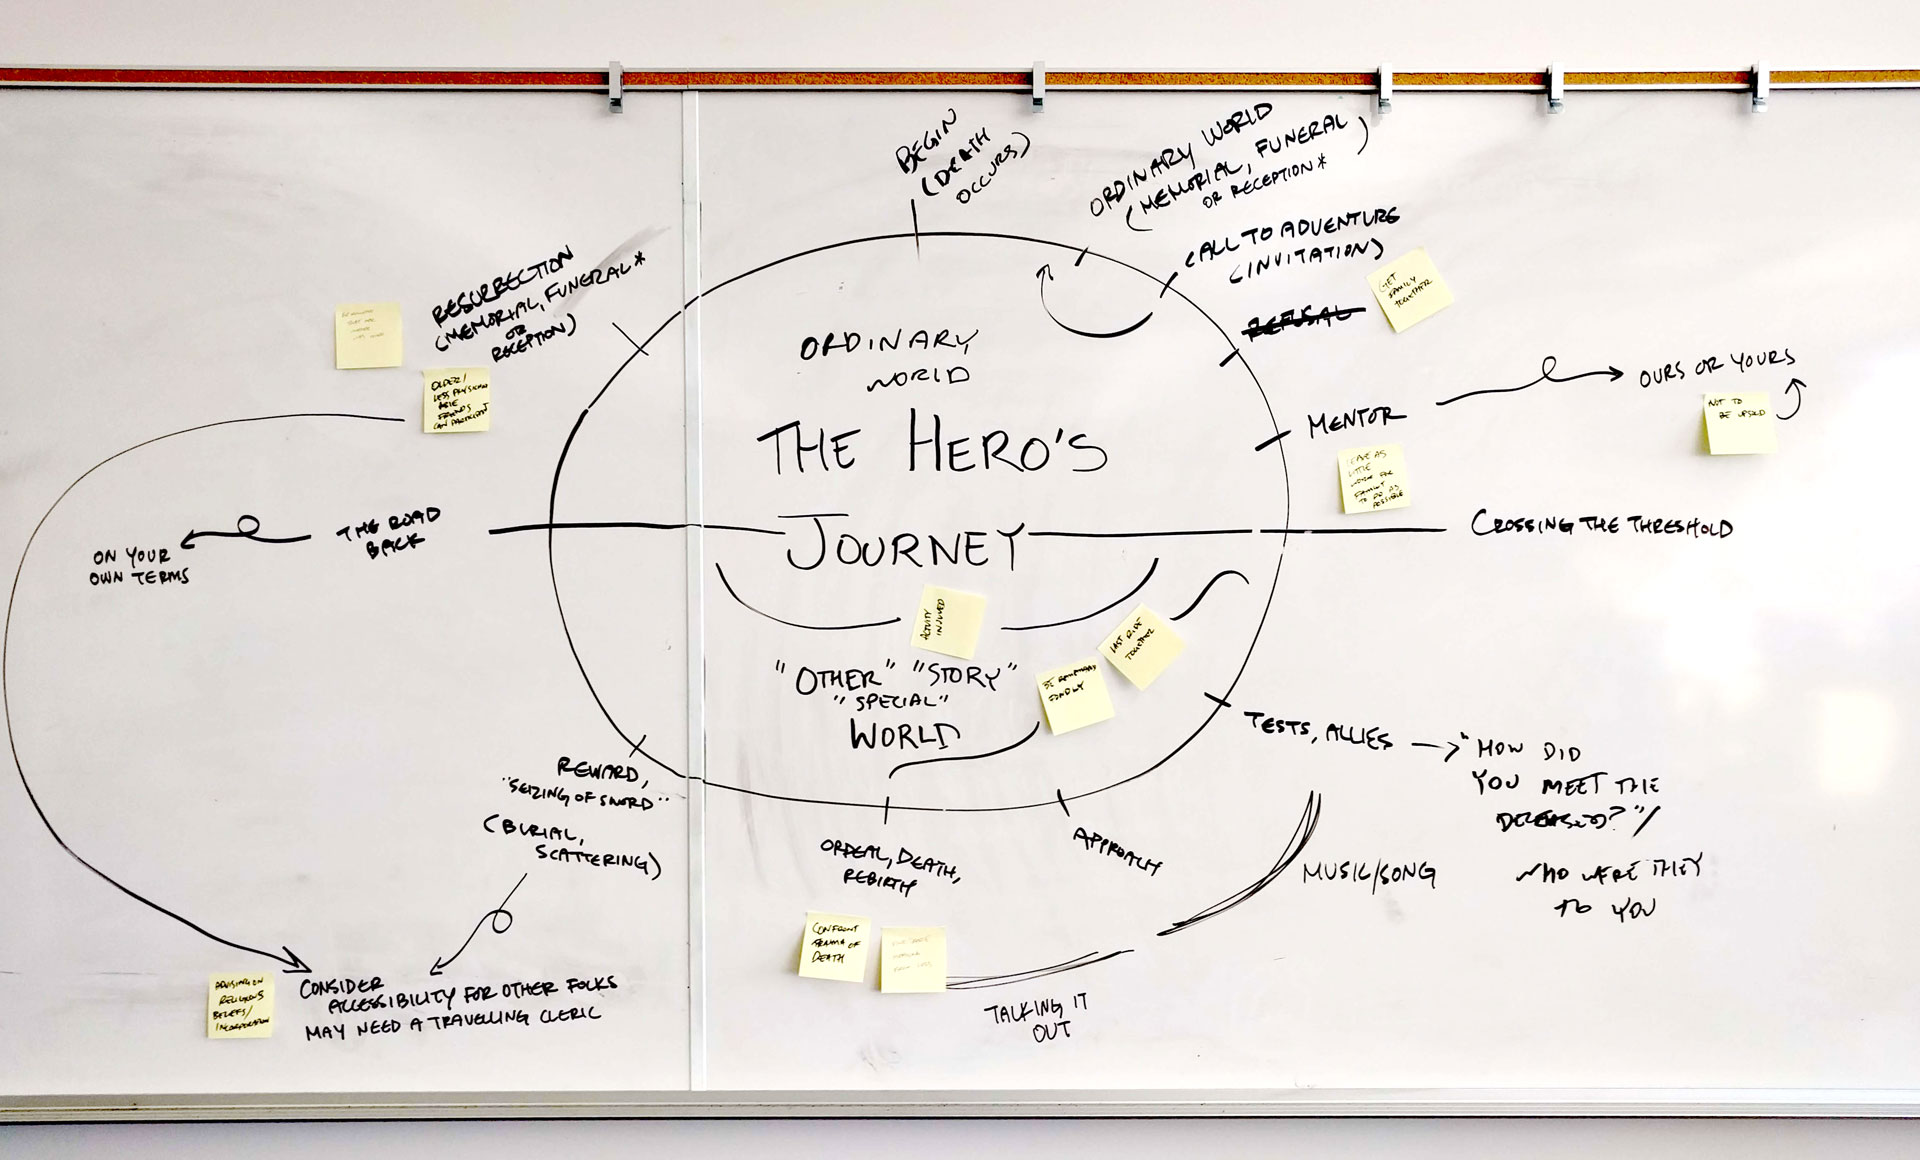 BEGIN
(DEATH
OCCURS)
ORDINARY WORLD
(MEMORIAL, FUNERAL)
OR RECEPTION*
CALL TO ADVENTURE
(INVITATION)
GET
FAMILY
TOGETHER
REFUSAL
MENTOR
OURS OR YOURS
NOT TO
BE UPSOLD
LEAVE AS
LITTLE
WORK FOR
FAMILY
TO DO AS
POSSIBLE
CROSSING THE THRESHOLD
TESTS, ALLIES
"HOW DID
YOU MEET THE
DECEASED?"/
WHO WERE THEY
TO YOU
MUSIC/SONG
APPROACH
TALKING IT
OUT
ORDEAL, DEATH,
REBIRTH
CONFRONT
TRAUMA OF
DEATH
FROM LOSS
REWARD,
"SEIZING OF SWORD"
(BURIAL,
SCATTERING)
CONSIDER
ACCESSIBILITY FOR OTHER FOLKS
MAY NEED A TRAVELLING CLERIC
ADVISING ON
RELIGIOUS
BELIEFS/
INCORPORATION
THE ROAD
BACK
ON YOUR
OWN TERMS
RESURRECTION
(MEMORIAL, FUNERAL*
OR
RECEPTION)
THAT ARE
OLDER/
LESS PHYSICALLY
ABLE
FRIENDS
CAN PARTICIPATE
ORDINARY
WORLD
THE HERO'S
JOURNEY
ACTIVITY
INVOLVED
"OTHER" "STORY"
"SPECIAL"
WORLD
BE REMEMBERED
FONDLY
LAST RIDE
TOGETHER